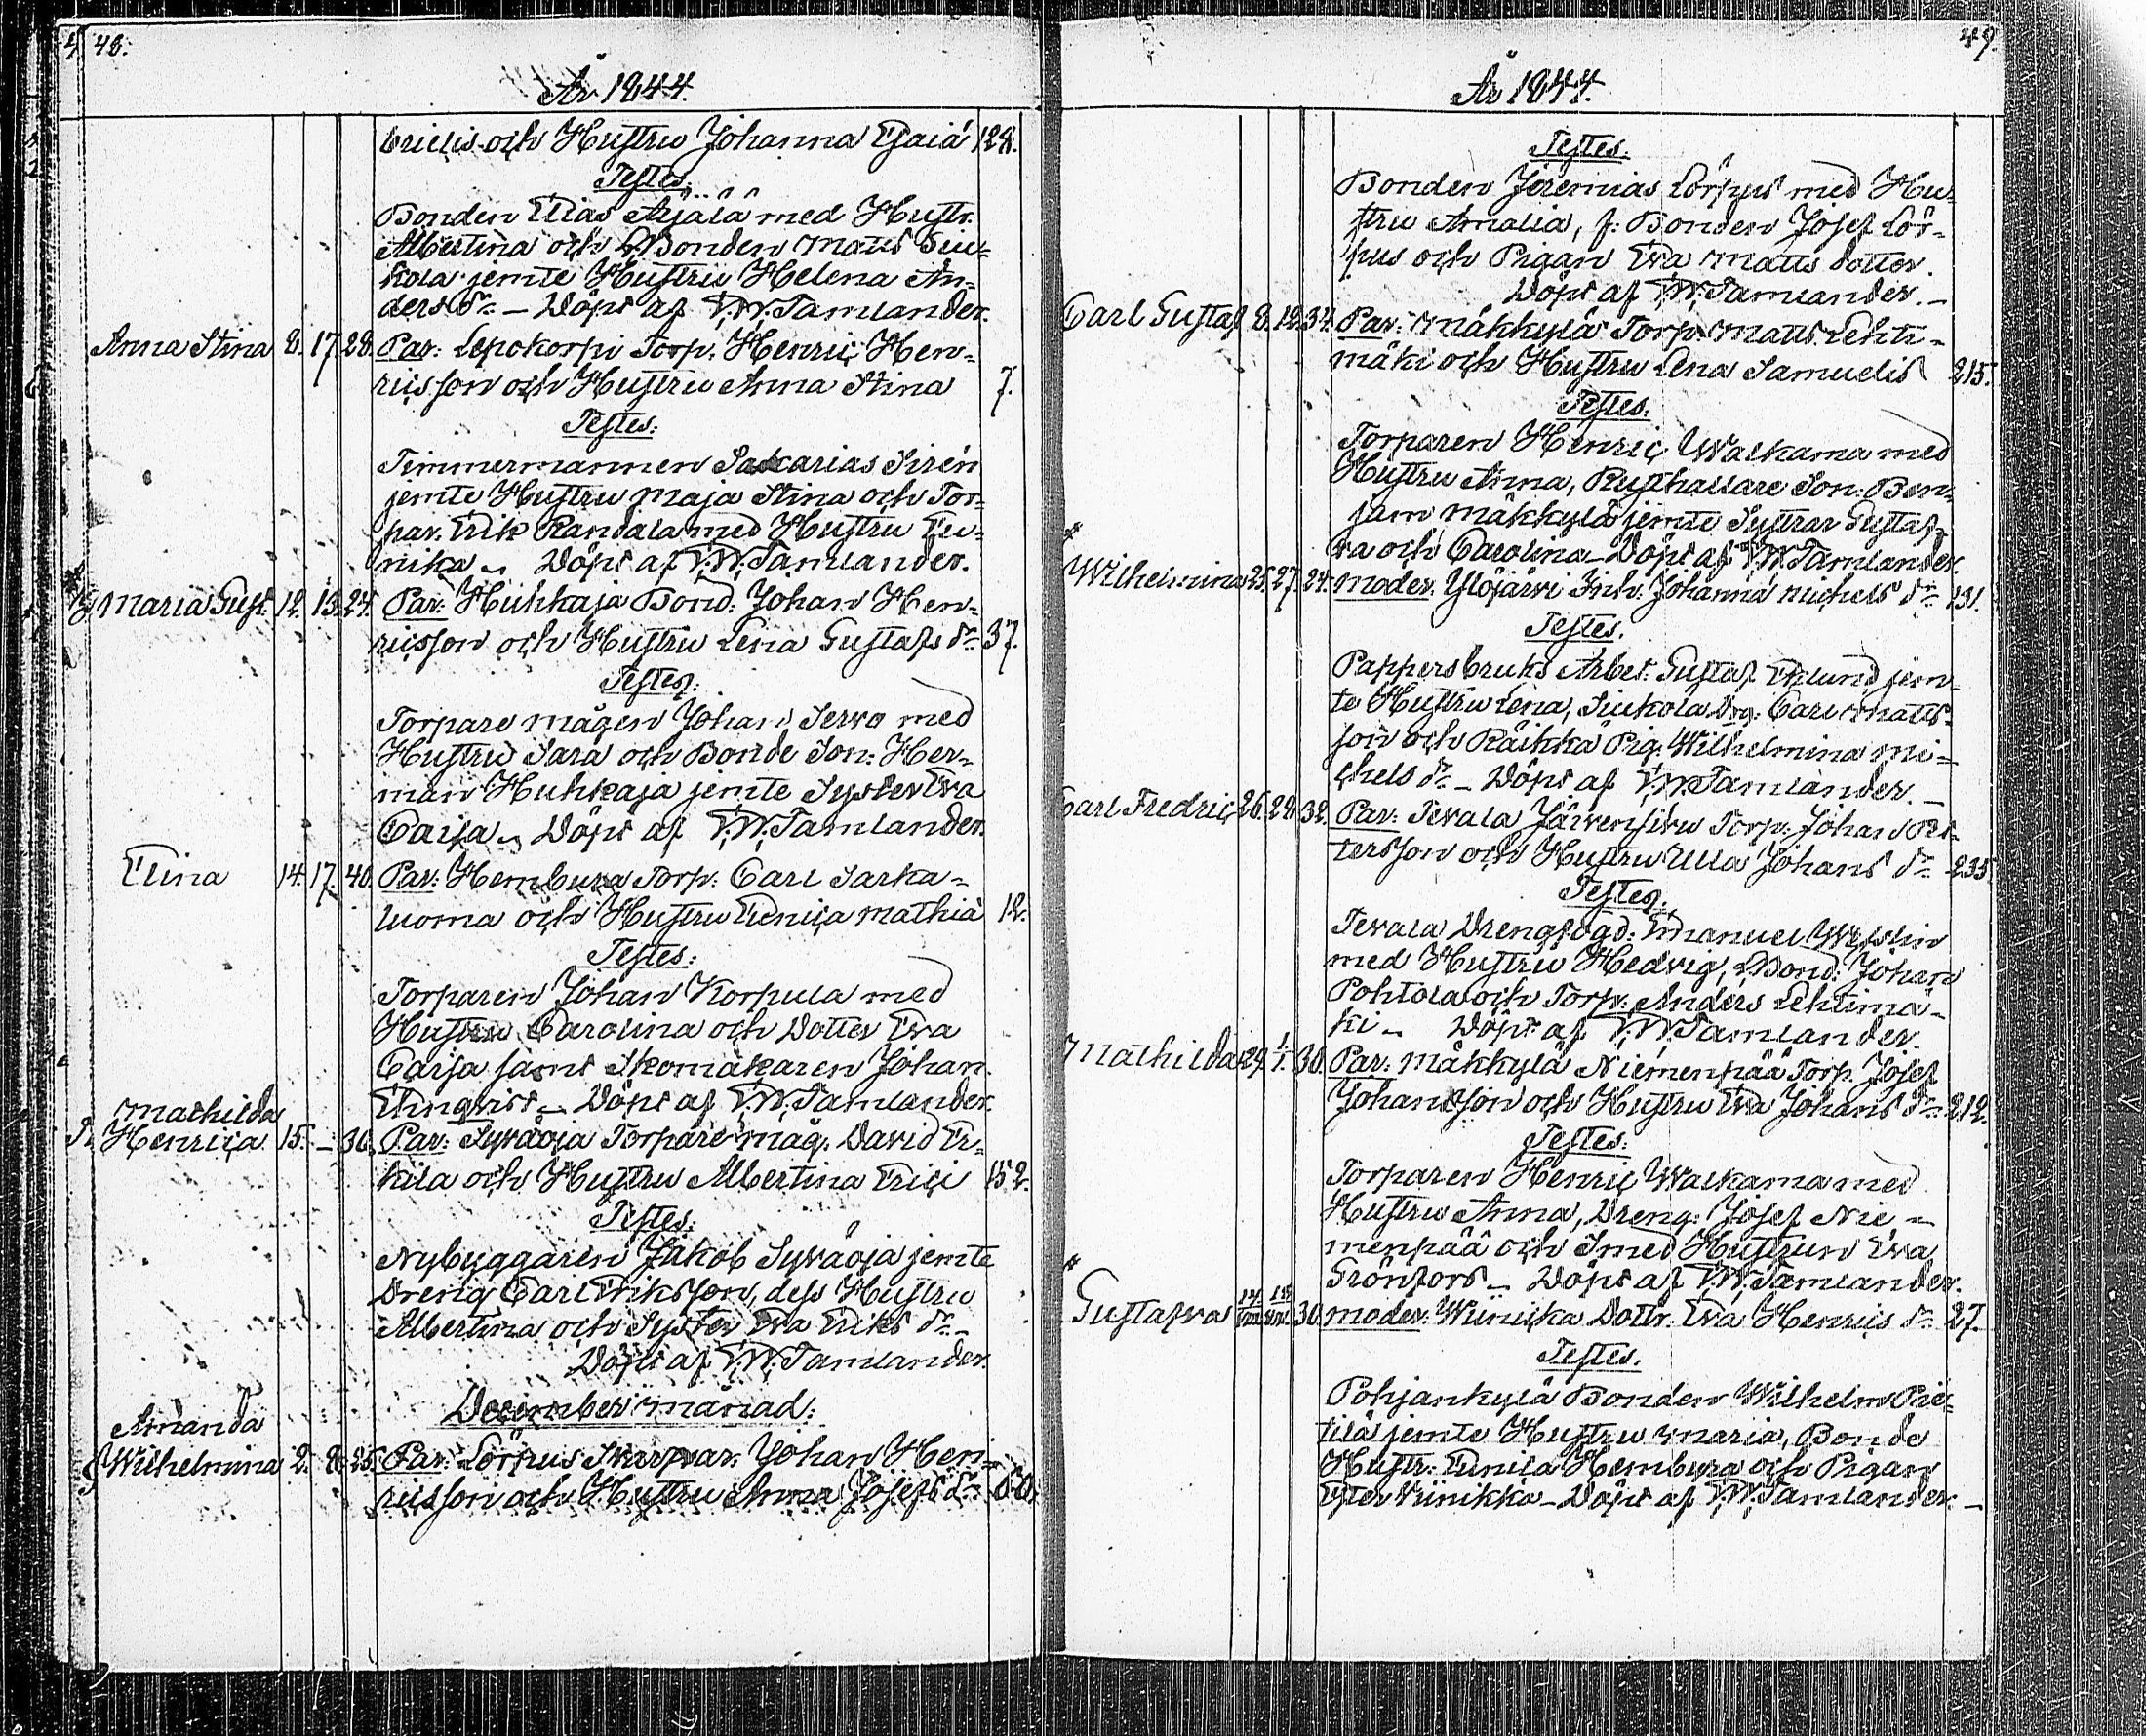 48.
År 1844.
brielis och Hustru Johanna Esaiæ 128.
Testes:
Bonden Elias Äijälä med Hustr.
Albertina och Bonden Matts Siu-
kola jemte Hustru Helena An-
ders dr. – Döpt af V.W. Tamlander.
Anna Stina 8. 17. 28. Par: Lepokorpi Torp. Henric Hen-
ricsson och Hustru Anna Stina 7.
Testes:
Timmermannen Sakarias Sirén
jemte Hustru Maja Stina och Tor-
par. Erik Randala med Hustru Eu-
nika – Döpt af V.W. Tamlander.
Maria Gust. 12. 13. 24. Par: Huhkaja Bond. Johan Hen-
ricsson och Hustru Lena Gustafs dr. 37.
Testes:
Torpare mågen Johan Servo med
Hustru Sara och Bonde Son: Her-
man Huhkaja jemte Syster Eva
Caisa – Döpt af V.W. Tamlander.
Elina 14. 17. 40. Par: Hembura Torp. Carl Sarka-
luoma och Hustru Eunica Mathiæ 12.
Testes:
Torparen Johan Korpula med
Hustru Carolina och Dotter Eva
Caisa samt Skomakaren Johan
Elmqvist – Döpt af V.W. Tamlander.
Mathilda
Henrica 15. – 36. Par: Syväoja Torpare måg. David Er-
kila och Hustru Albertina Erici 152.
Testes:
Nybyggaren Jakob Syväoja jemte
Dreng Carl Eriksson, dess Hustru
Albertina och Syster Eva Eriks dr. –
Döpt af V.W. Tamlander.
December månad:
Amanda
Wilhelmina 2. 8. 25. Par: Lörpus Svarvar. Johan Hen-
ricsson och Hustru Anna Josefs dr. 60.
49.
År 1844.
Testes:
Bonden Jeremias Lörpus med Hu-
stru Amalia, f. Bonden Josef Lör-
pus och Pigan Eva Matts dotter.
Döpt af V.W. Tamlander. –
Carl Gustaf 8. 12. 34. Par: Mäkkylä Torp. Matts Lehti-
mäki och Hustru Lena Samuelis 215.
Testes:
Torparen Henric Walkama med
Hustru Anna, Rusthållare Son: Ben-
jam Mäkkylä jemte Systrar Gustaf-
va och Carolina – Döpt af V.W. Tamlander.
Wilhelmina 25. 27. 24. Moder. Ylöjärvi Inh. Johanna Michels dr. 131.
Testes.
Pappersbruks Arbet. Gustaf Eklund jem-
te Hustru Lena, Siukola Drg. Carl Matts-
son och Räikkä Pig. Wilhelmina Mi-
chels dr. – Döpt af V.W. Tamlander. –
Carl Fredric 26. 28. 32. Par: Tevala Järvensivu Torp. Johan Pet-
tersson och Hustru Ulla Johans dr. 235.
Testes:
Tevala Drengfogd: Emanuel Westlin
med Hustru Hedvig, Bond: Johan
Pohtola och Torp. Anders Lehtimä-
ki – Döpt af V.W. Tamlander.
Mathilda 29. 1/1. 30. Par: Mäkkylä Niemenpää Torp. Josef
Johansson och Hustru Eva Johans dr. 212.
Testes:
Torparen Henric Walkama med
Hustru Anna, Dreng: Josef Nie-
menpää och Smed Hustrun Eva
Grönfors – Döpt af V.W. Tamlander.
Gustafva 30. Moder: Wiinicka Dottr. Eva Henrics dr. 27.
Testes.
Pohjankylä Bonden Wilhelm Pie-
tilä jemte Hustru Maria, Bonde
Hustr: Eunica Hembura och Pigan
Ester Viinikka – Döpt af V.W. Tamlander. –